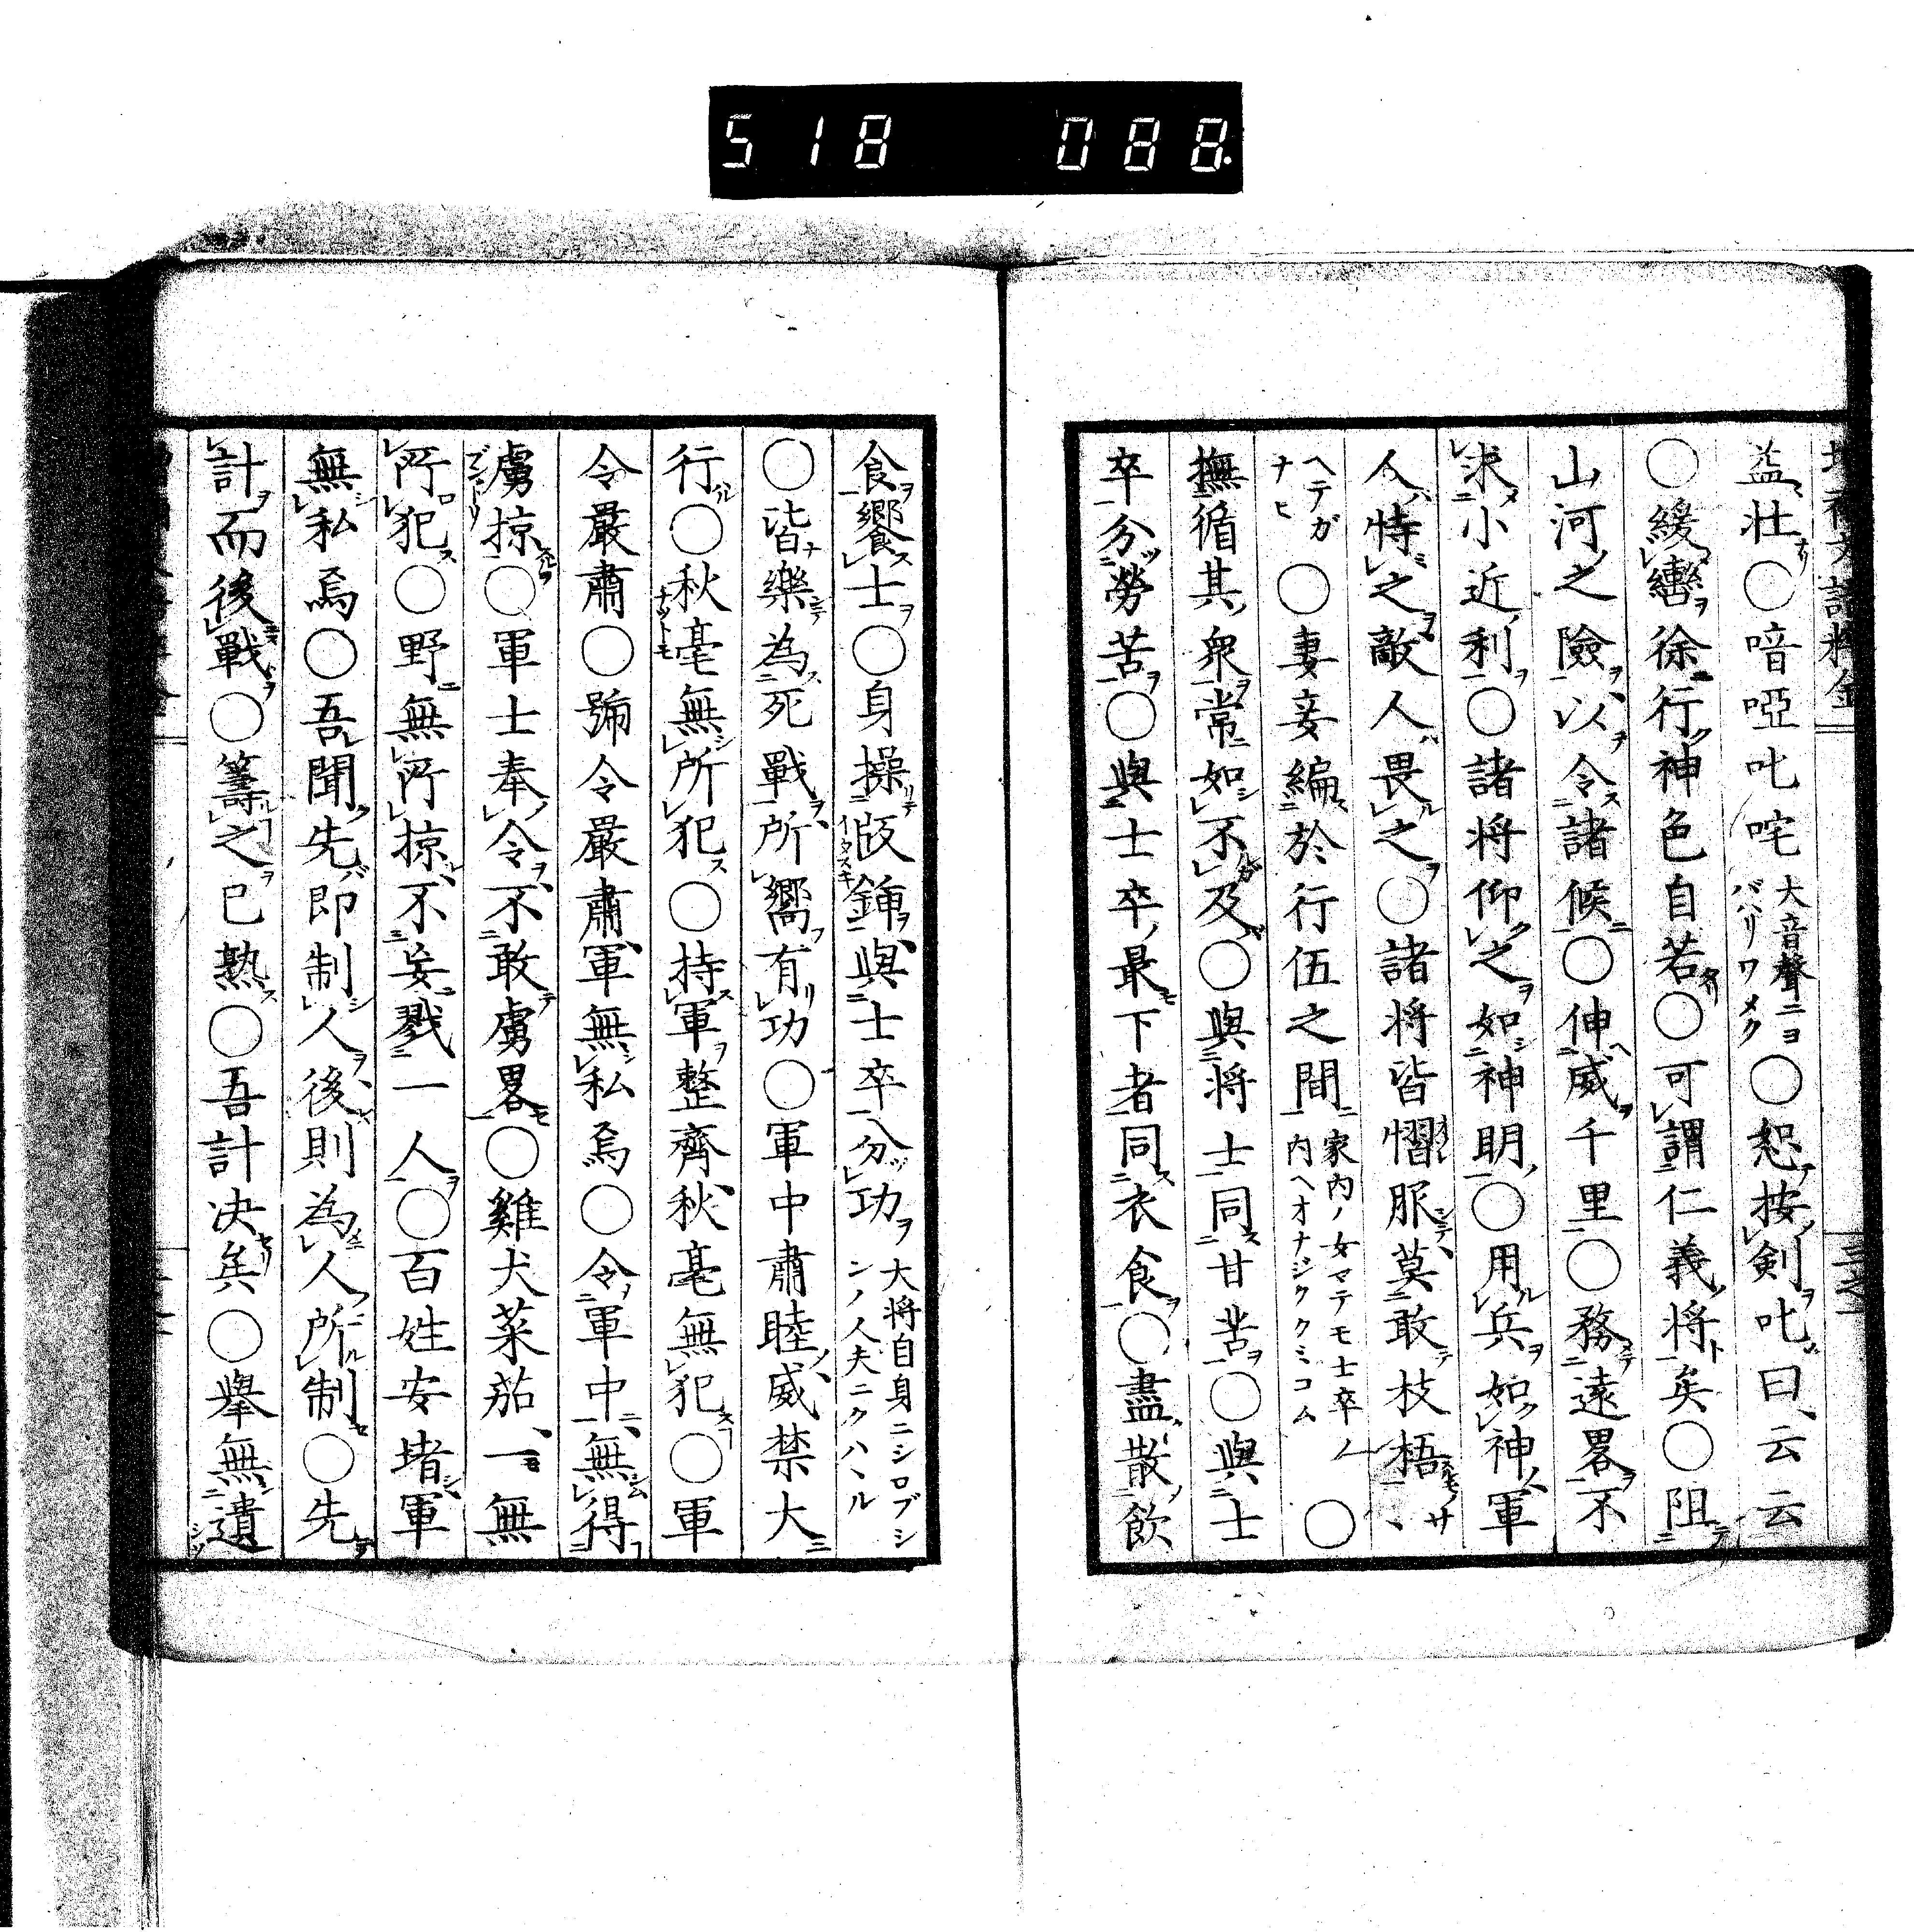 518 088
益壮○喑啞叱咤大音聲ニヨバハリワメク○怒按剣叱曰云云
○緩轡徐行神色自若○可謂仁義将矣○阻
山河之險以令諸候○伸威千里○務遠畧不
求小近利○諸将仰之如神明○用兵如神軍
人恃之敵人畏之○諸将皆慴服莫敢枝梧サ、
ヘテガナヒ○妻妾編於行伍之間家内ノ女マテモ士卒ノ内ヘオナジククミコム○
撫循其衆常如不及○與将士同甘苦○與士
卒分勞苦○與士卒最下者同衣食○盡散飲
食饗士○身操版鍤與士卒分功大将自身ニシロブシンノ人夫ニクハヽル
○皆樂為死戰所嚮有功○軍中肅睦威禁大
行○秋毫無所犯○持軍整齊秋毫無犯○軍
令嚴肅○號令嚴肅軍無私焉○令軍中無得
虜掠○軍士奉令不敢虜畧○雞犬菜茄一無
所犯○野無所掠不妄戮一人○百姓安堵軍
無私焉○吾聞先即制人後則為人所制○先
計而後戰○籌之已熟○吾計决矣○舉無遺